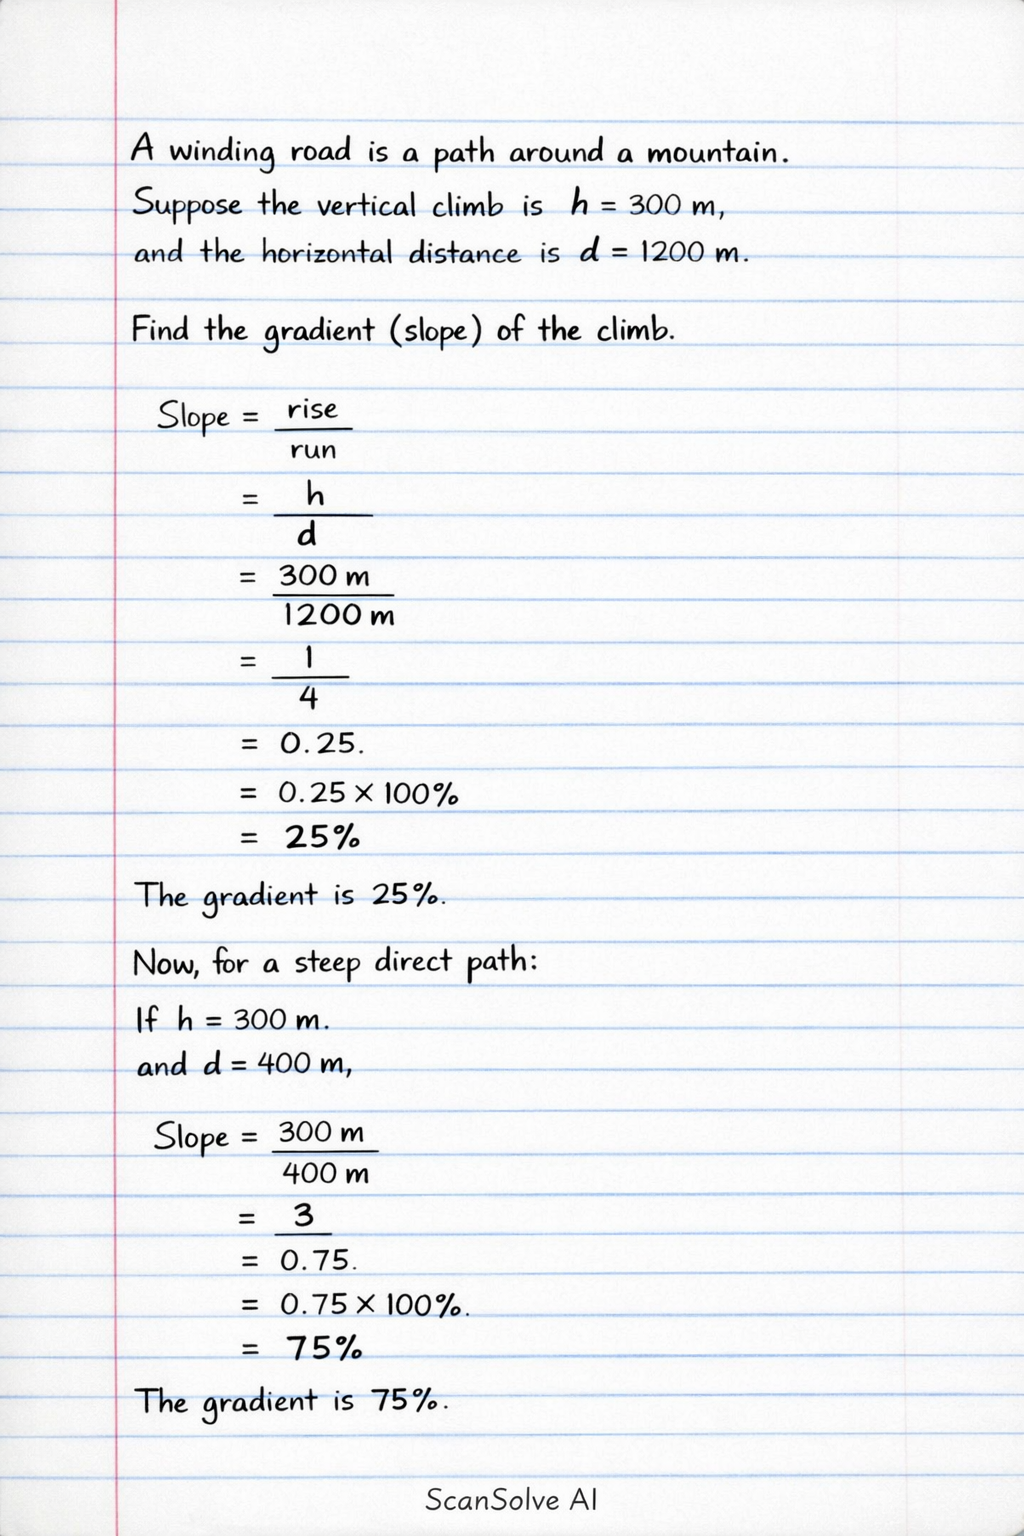 A winding road is a path around a mountain.
Suppose the vertical climb is h = 300 m,
and the horizontal distance is d = 1200 m.
Find the gradient (slope) of the climb.
Slope = rise
run
= h
d
= 300 m
1200 m
= 1
4
= 0.25.
= 0.25 × 100%
= 25%
The gradient is 25%.
Now, for a steep direct path:
If h = 300 m.
and d = 400 m,
Slope = 300 m
400 m
= 3
= 0.75.
= 0.75 × 100%.
= 75%
The gradient is 75%.
ScanSolve AI